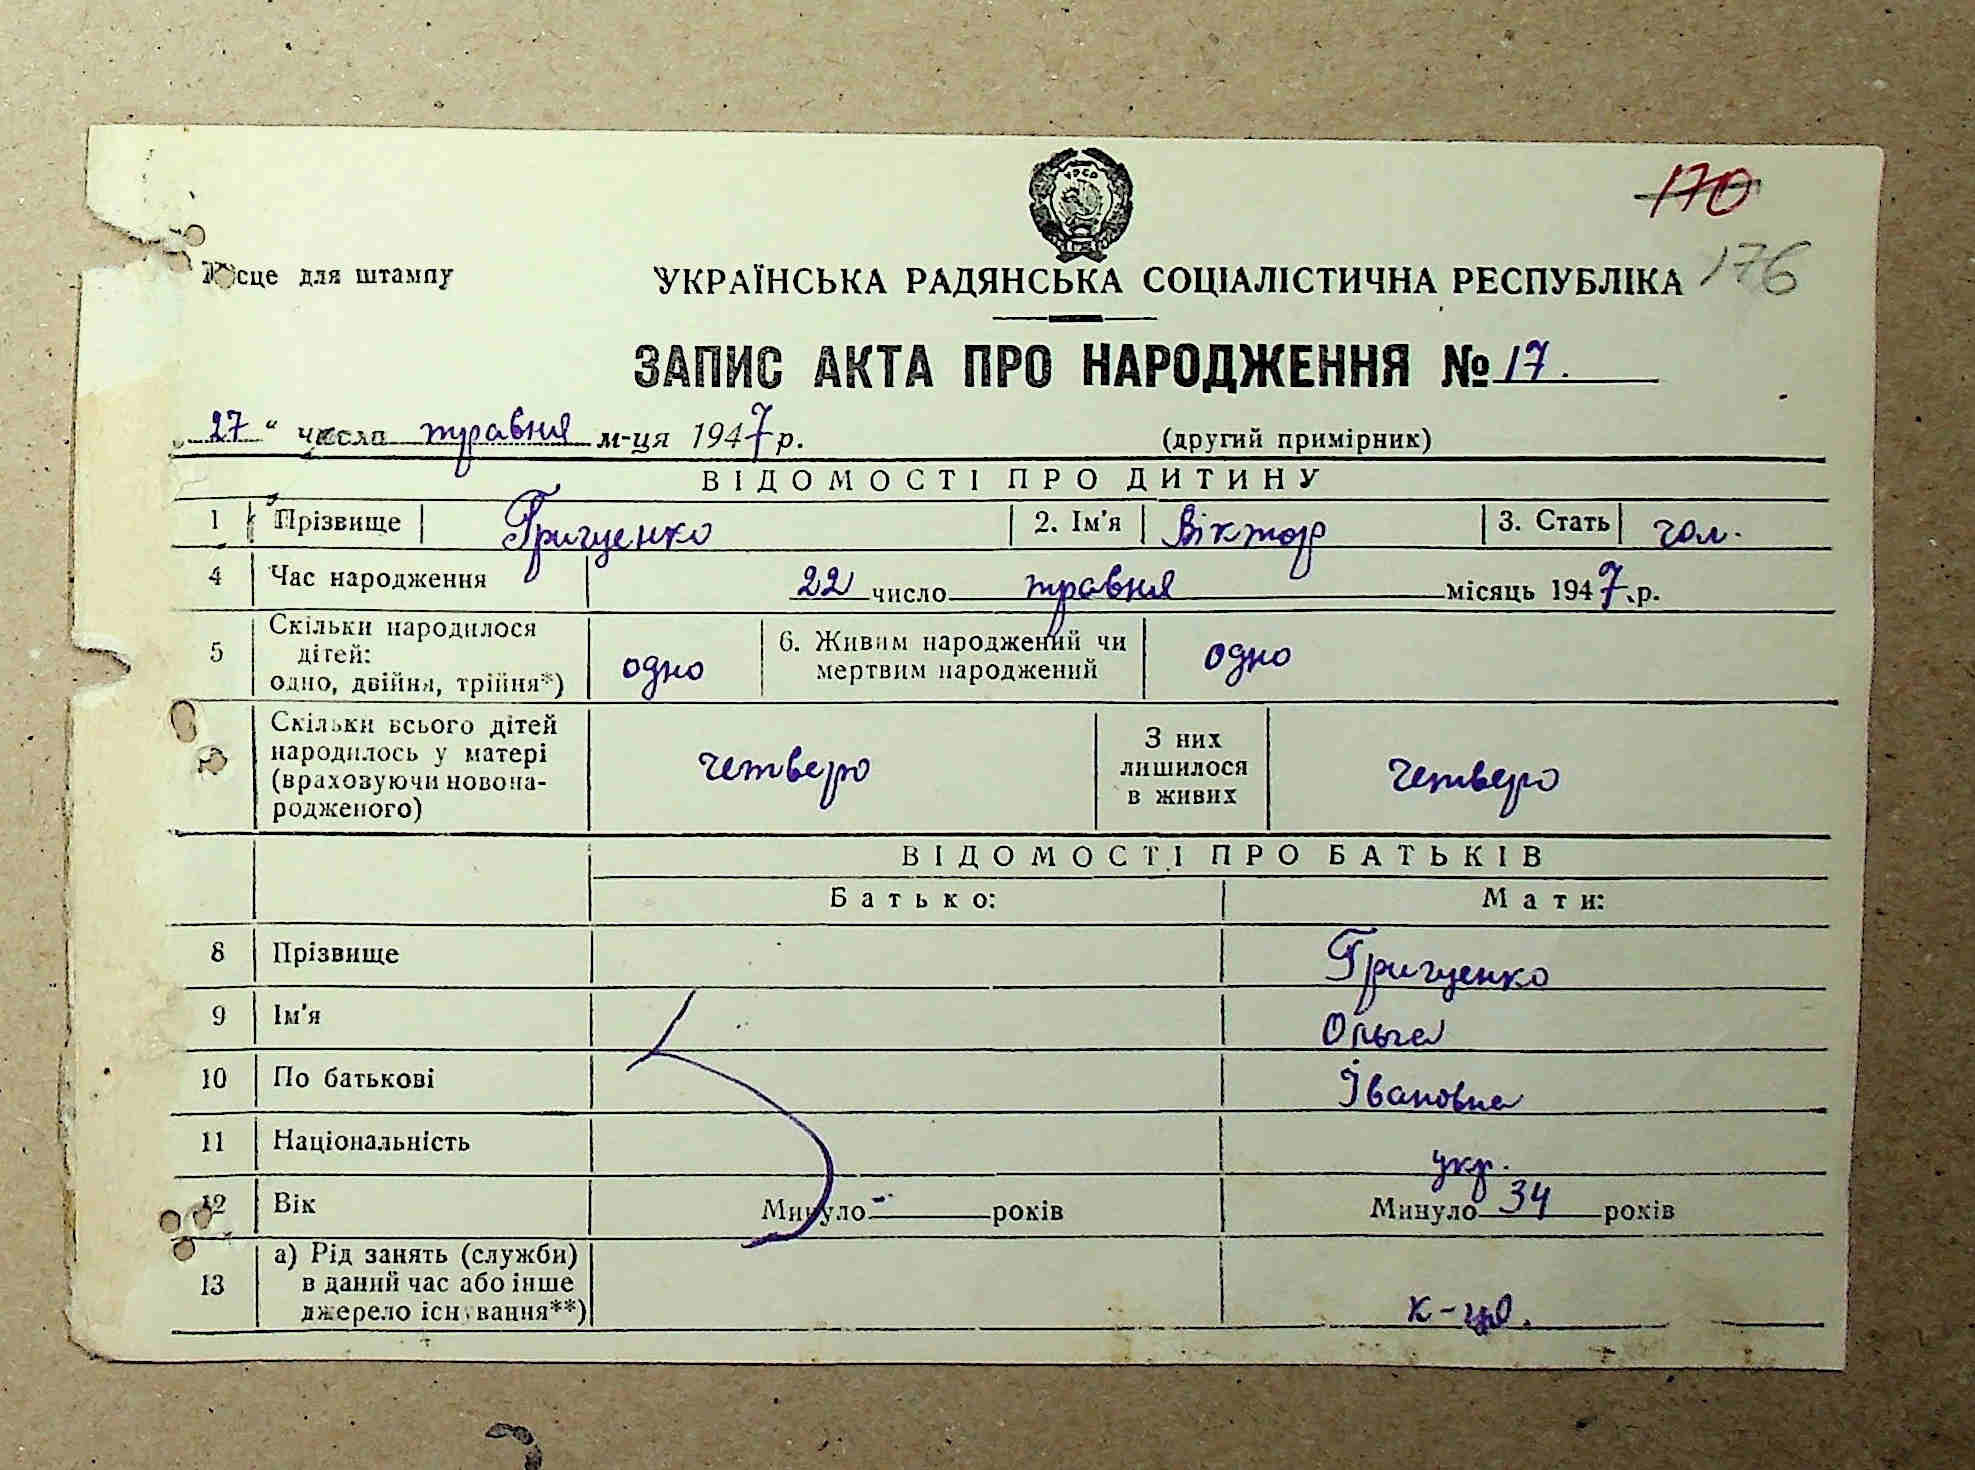 170
176
Місце для штампу
УКРАЇНСЬКА РАДЯНСЬКА СОЦІАЛІСТИЧНА РЕСПУБЛІКА
ЗАПИС АКТА ПРО НАРОДЖЕННЯ № 17.
„27“ числа травня м-ця 1947 р.
(другий примірник)
ВІДОМОСТІ ПРО ДИТИНУ
1 Прізвище Григуценко 2. Ім'я Віктор 3. Стать чол.
4 Час народження 22 число травня місяць 1947 р.
5 Скільки народилося
дітей:
одно, двійня, трійня*) одно
6. Живим народжений чи
мертвим народжений одно
Скільки всього дітей
народилось у матері
(враховуючи новона-
родженого) четверо
З них
лишилося
в живих четверо
ВІДОМОСТІ ПРО БАТЬКІВ
Батько: Мати:
8 Прізвище Григуценко
9 Ім'я Ольга
10 По батькові Івановна
11 Національність укр.
12 Вік Минуло - років Минуло 34 років
13 а) Рід занять (служби)
в даний час або інше
джерело існування**) к-ця.